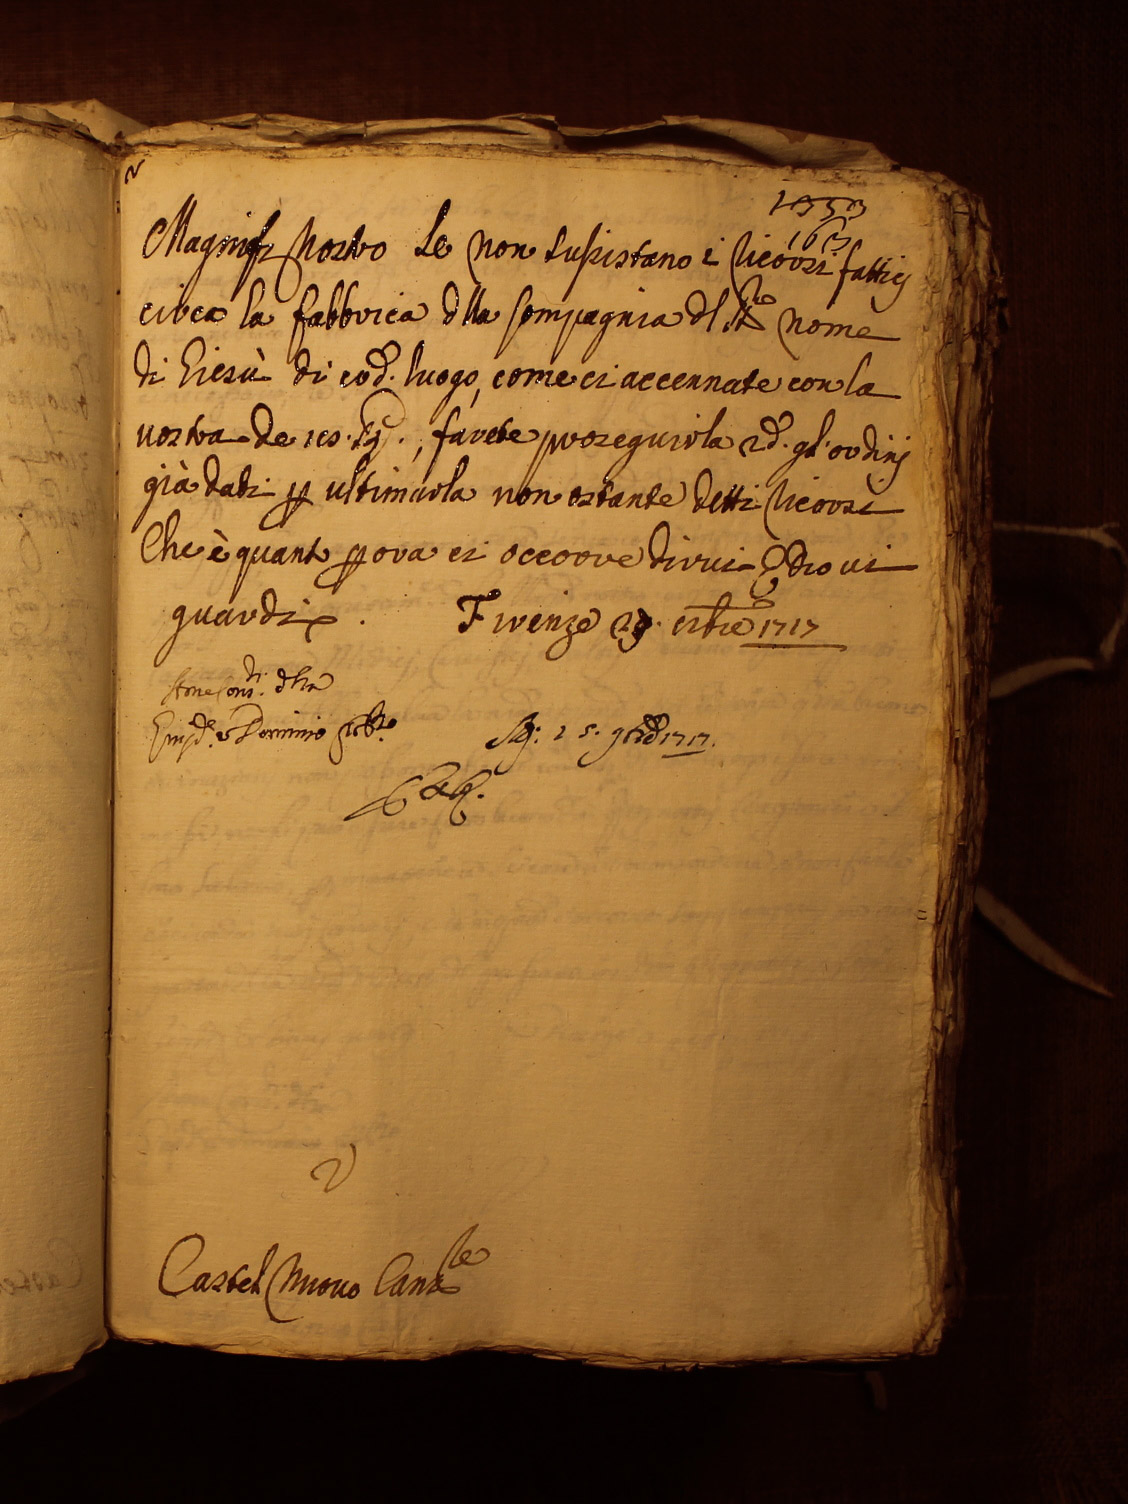 2
1353
163
Magnif.co Nostro Se non sussistano i ricorsi fattici
circa la fabbrica dlla Compagnia dl SS.mo nome
di Giesù di cod. luogo, come ci accennate con la
vostra de
farete proseguirla gl' ordinj
già dati p ultimarla non ostante detti ricorsi
Che è quant p ora ci occorre dirvi e Dio vi
guardi. Firenze 29. 1717
Dominio
1717.
Castel Nuovo Canc.re